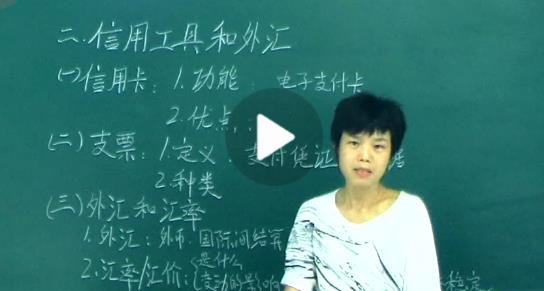 二.信用工具和外汇
(一)信用卡：1.功能：电子支付卡
2.优点
(二)支票：1.定义：支付凭证
2.种类
(三)外汇和汇率
1.外汇：外币.国际间结算
是什么
2.汇率/汇价：变动的影响 稳定